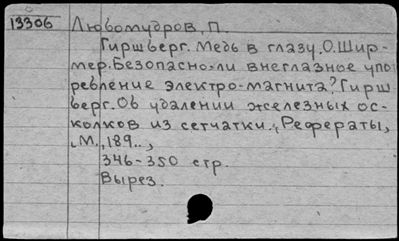 13306 Любомудров, П.
Гиршберг. Медь в глазу. О. Шир-
мер. Безопасно-ли внеглазное упо
ребление электро-магнита? Гирш
берг. Об удалении железных ос-
колков из сетчатки., Рефераты,
,М., 189..,
346-350 стр.
Вырез.